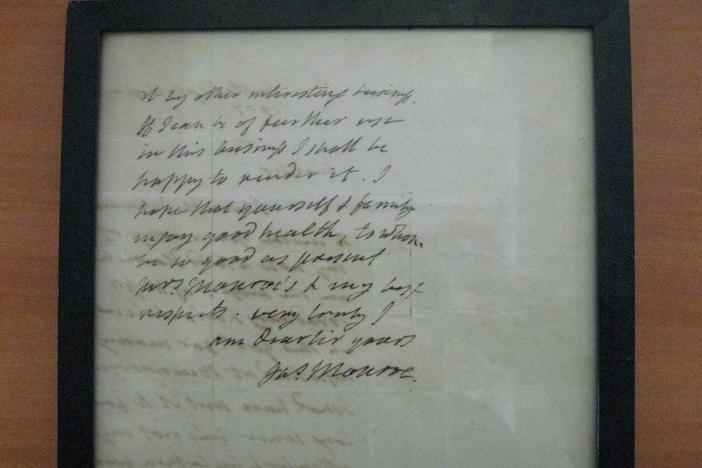 it by other interesting business.
If I can be of further use
in this business I shall be
happy to render it. I
hope that yourself & family
enjoy good health, to whom
be so good as present
Mrs. Monroe's & my best
respects. very truly I
am dear sir yours
Jas. Monroe.